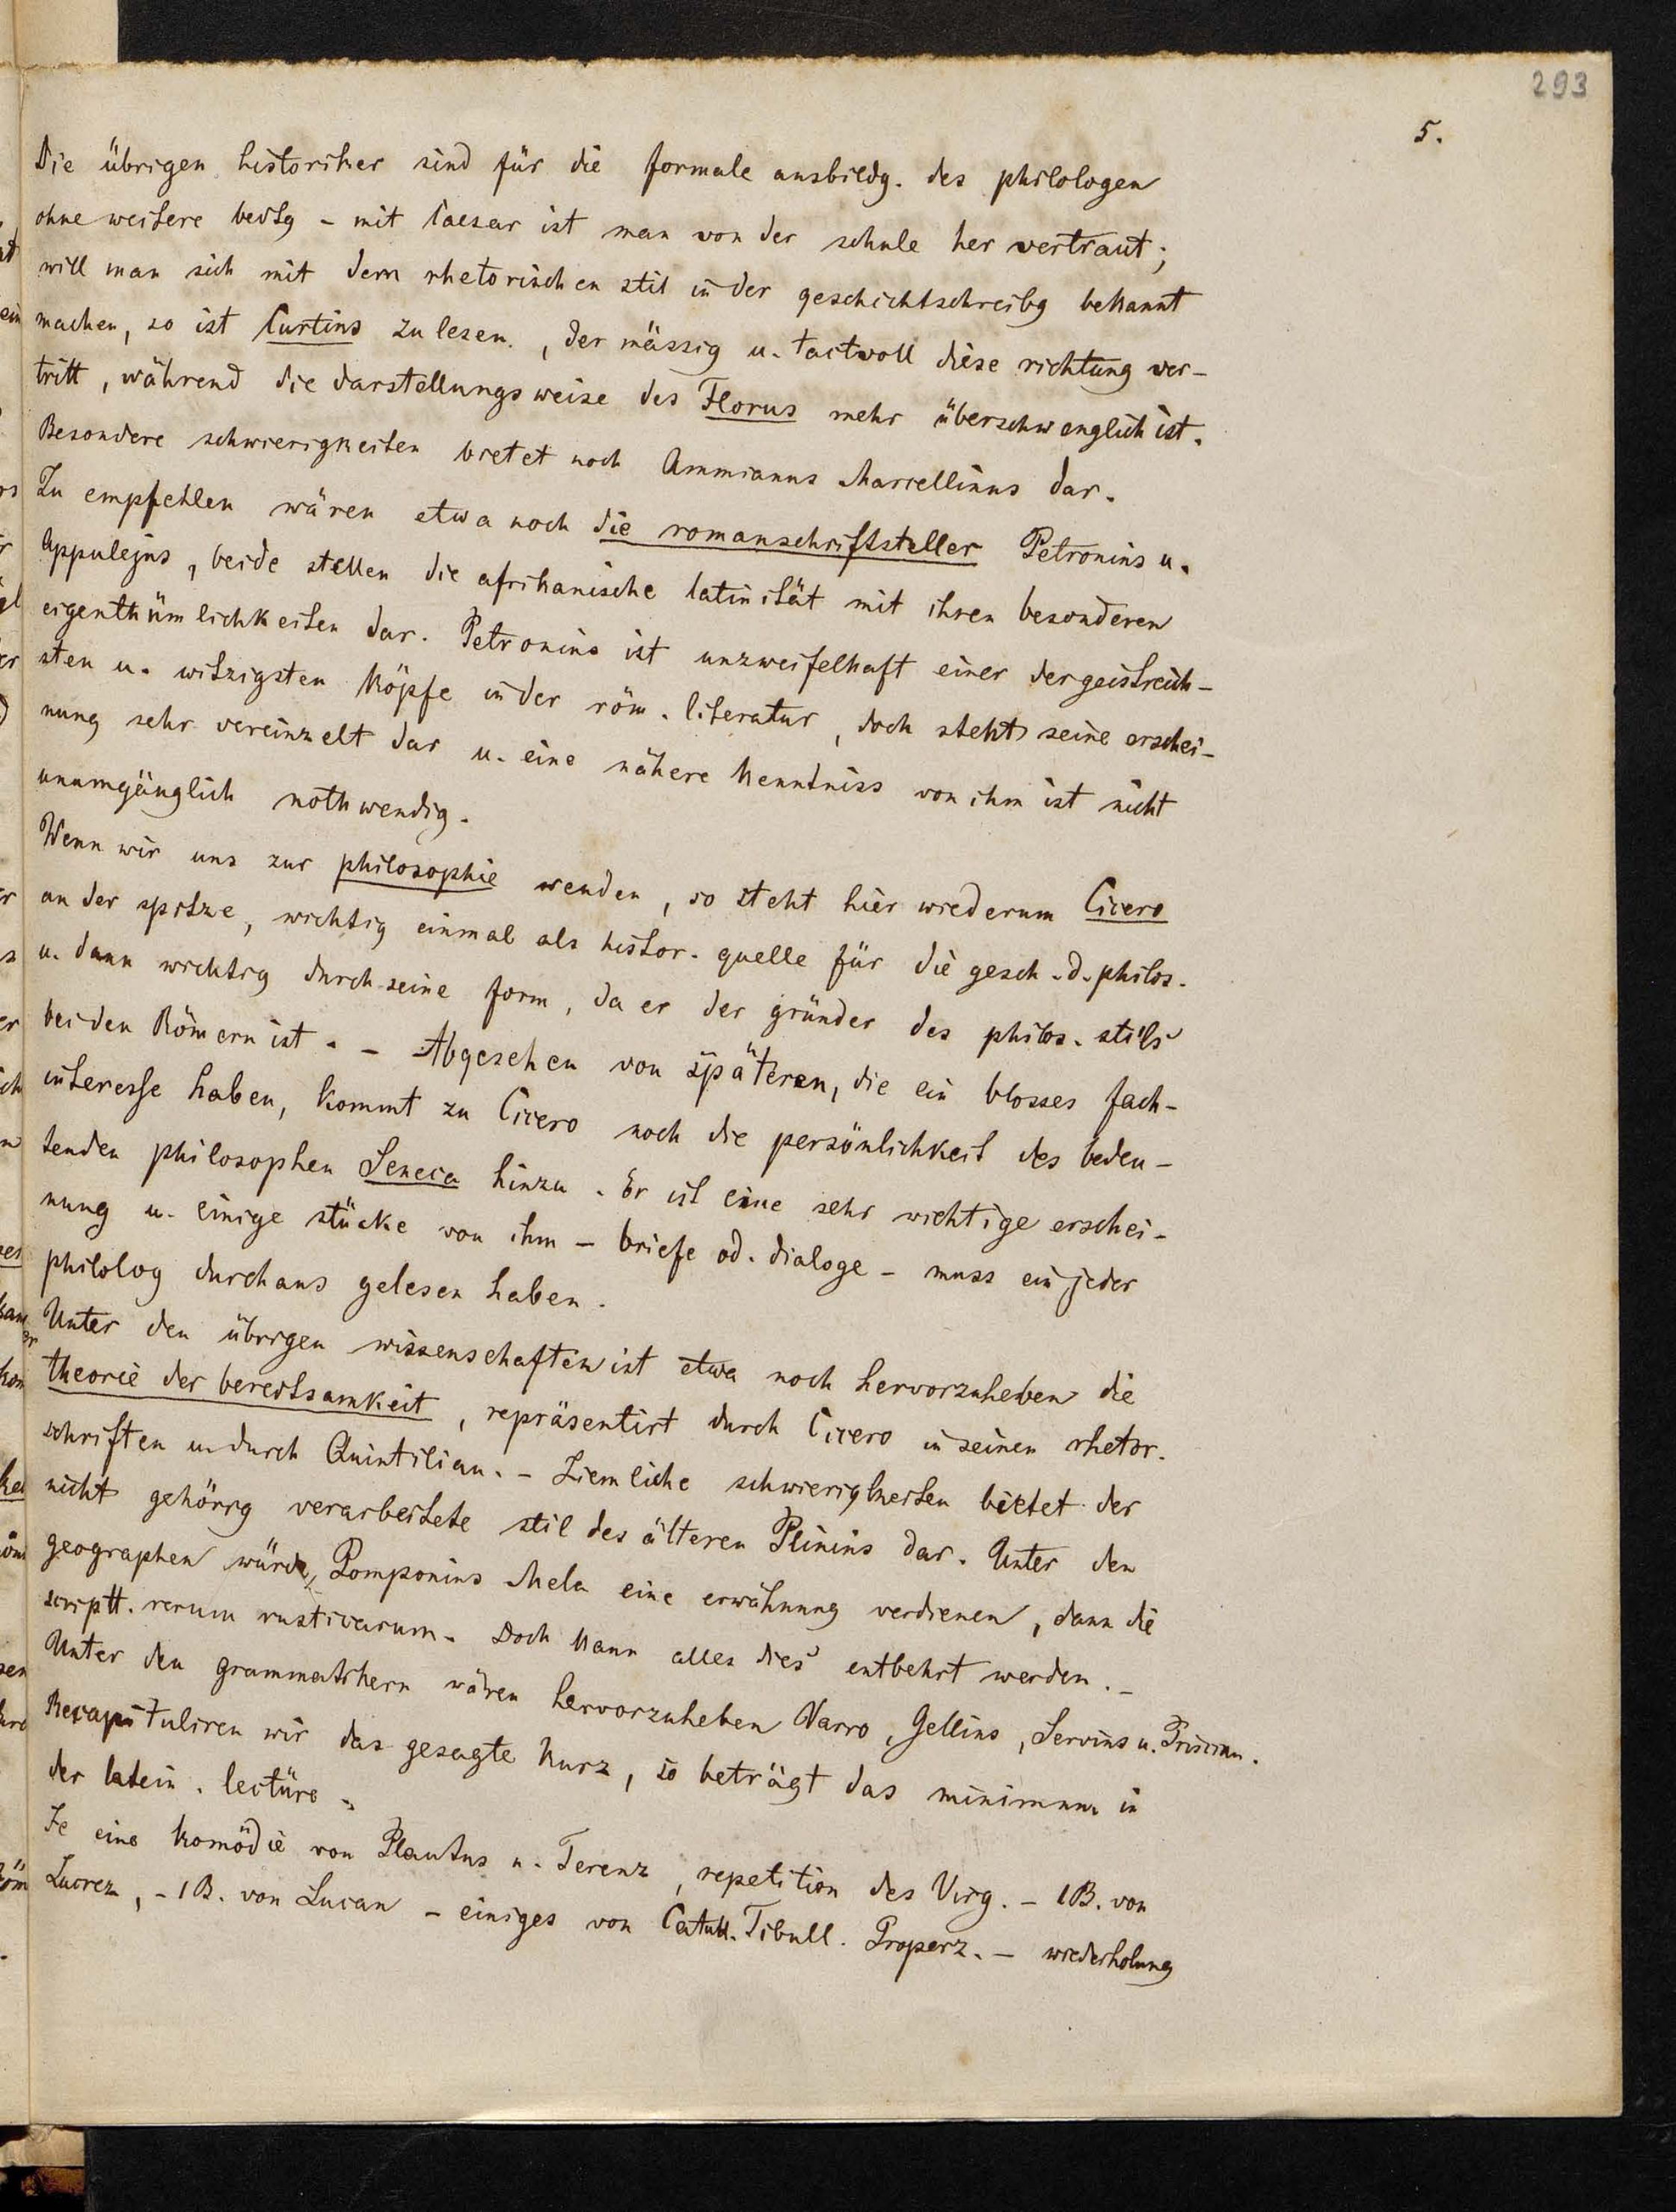 293
5.
Die übrigen historiker sind für die formale ausbildg. des philologen
ohne weitere bedtg – mit Caesar ist man von der schule her vertraut;
will man sich mit dem rhetorischen stil in der geschichtschreibg bekannt
machen, so ist Curtius zu lesen, der mässig u. tactvoll diese richtung ver-
tritt, während die darstellungsweise des Florus mehr überschwenglich ist.
Besondere schwierigkeiten bietet noch Ammianus Marcellinus dar.
Zu empfehlen wären etwa noch die romanschriftsteller Petronius u.
Appulejus, beide stellen die afrikanische latinität mit ihren besonderen
eigenthümlichkeiten dar. Petronius ist unzweifelhaft einer der geistreich-
sten u. witzigsten köpfe in der röm. literatur, doch steht seine erschei-
nung sehr vereinzelt dar u. eine nähere kenntniss von ihm ist nicht
unumgänglich nothwendig.
Wenn wir uns zur philosophie wenden, so steht hier wiederum Cicero
an der spitze, wichtig einmal als histor. quelle für die gesch. d. philos.
u. dann wichtig durch seine form, da er der gründer des philos. stils
bei den Römern ist. – Abgesehen von späteren, die ein blosses fach-
interesse haben, kommt zu Cicero noch die persönlichkeit des bedeu-
tenden philosophen Seneca hinzu. Er ist eine sehr wichtige erschei-
nung u. einige stücke von ihm – briefe od. dialoge – muss ein jeder
philolog durchaus gelesen haben.
Unter den übrigen wissenschaften ist etwa noch hervorzuheben die
theorie der beredtsamkeit, repräsentirt durch Cicero in seinen rhetor.
schriften u. durch Quintilian. – Ziemliche schwierigkeiten bietet der
nicht gehörig verarbeitete stil des älteren Plinius dar. Unter den
geographen würde Pomponius Mela eine erwähnung verdienen, dann die
scriptt. rerum rusticarum. Doch kann alles dies entbehrt werden. –
Unter den grammatikern wären hervorzuheben Varro, Gellius, Servius u. Priscian.
Recapituliren wir das gesagte kurz, so beträgt das minimum in
der latein. lectüre
Je eine komödie von Plautus u. Terenz, repetition des Virg. – 1 B. von
Lucrez, – 1 B. von Lucan – einiges von Catull. Tibull. Properz. – wiederholung